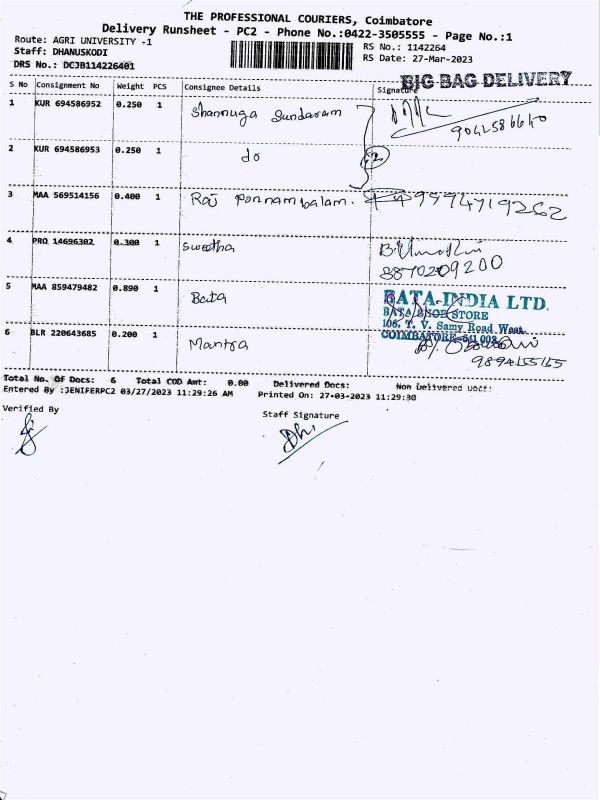 THE PROFESSIONAL COURIERS, Coimbatore
Delivery Runsheet - PC2 - Phone No.:0422-3505555 - Page No.:1
Route: AGRI UNIVERSITY -1
RS No.: 1142264
Staff: DHANUSKODI
RS Date: 27-Mar-2023
DRS No.: DCJB114226401
BIG BAG DELIVERY
S No Consignment No Weight PCS Consignee Details Signature
1 KUR 694586952 0.250 1 Shanmuga Sundaram
9042586640
2 KUR 694586953 0.250 1 do
3 MAA 569514156 0.400 1 Raj Ponnambalam. 9994719262
4 PRO 14696302 0.300 1 Swetha
8870209200
5 MAA 859479482 0.890 1 Bata
BATA INDIA LTD.
BATA SHOE STORE
106, T. V. Samy Road West,
COIMBATORE-641 002
6 BLR 220643685 0.200 1 Mantra
Total No. Of Docs: 6 Total COD Amt: 0.00 Delivered Docs: Non Delivered Docs:
Entered By :JENIFERPC2 03/27/2023 11:29:26 AM Printed On: 27-03-2023 11:29:30
Verified By
Staff Signature